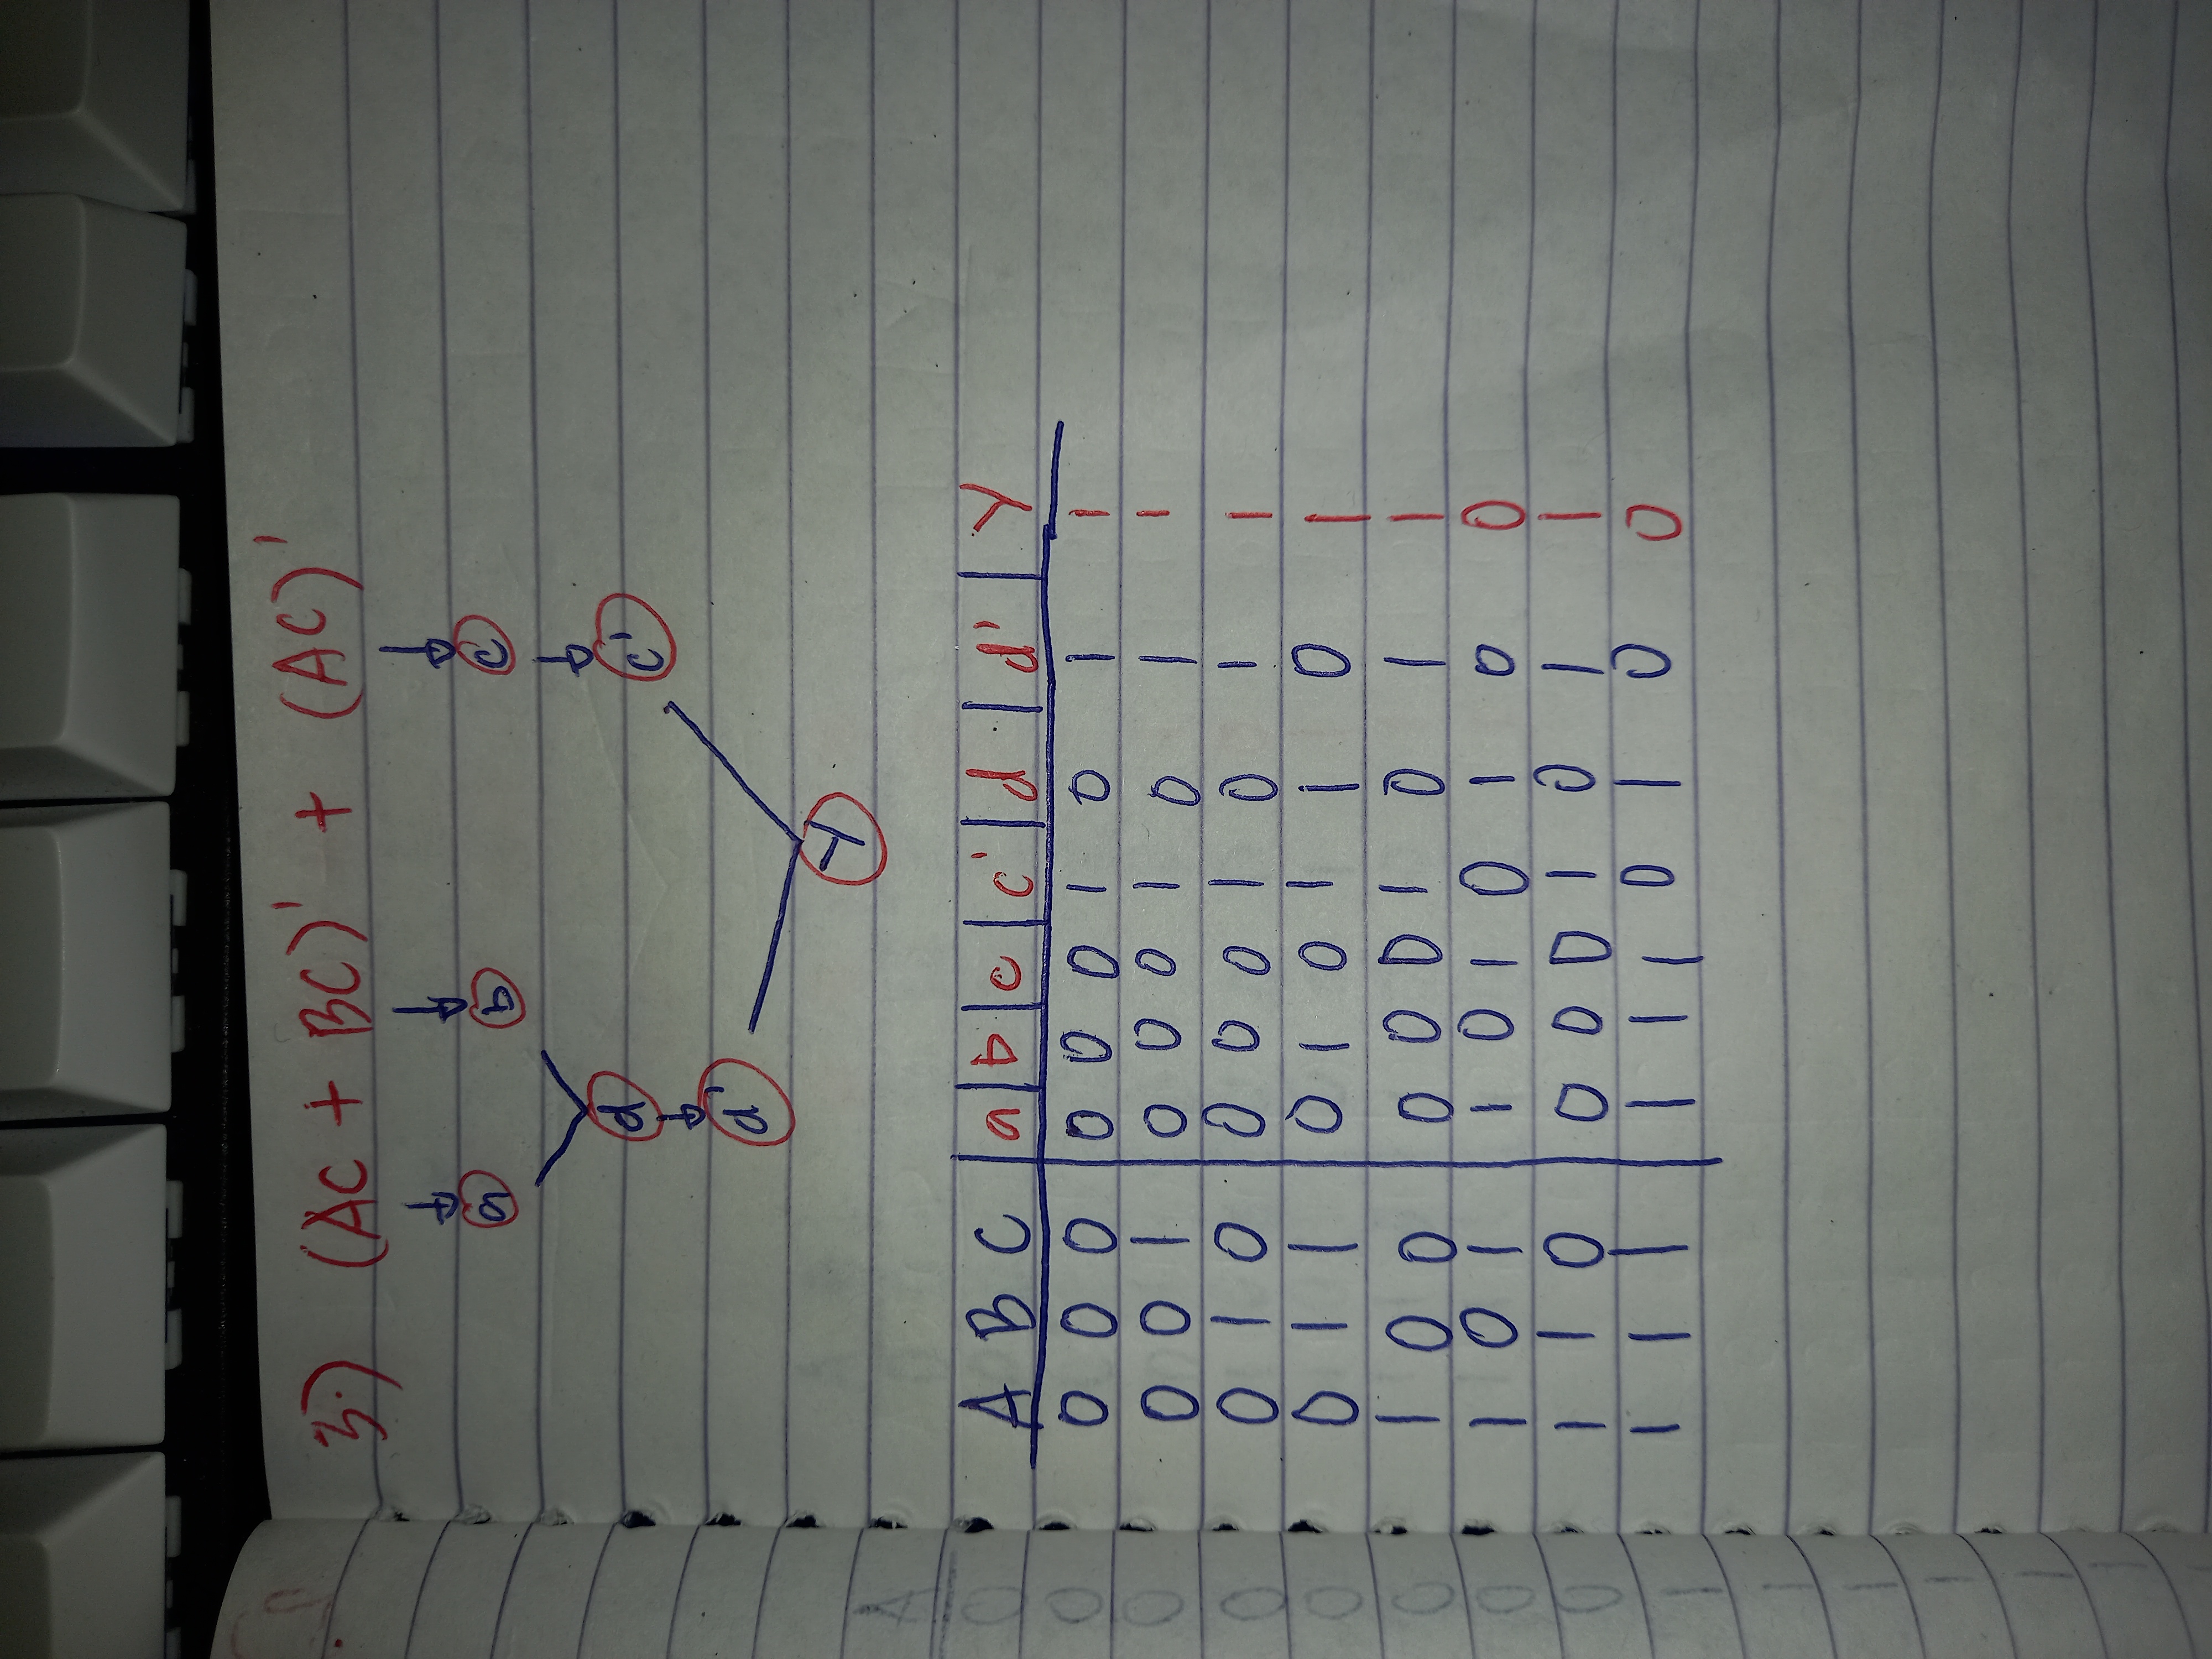 3.) (AC + BC)' + (AC)'
a b c
d c'
d'
Y
A B C a b c c' d d' Y
0 0 0 0 0 0 1 0 1 1
0 0 1 0 0 0 1 0 1 1
0 1 0 0 0 0 1 0 1 1
0 1 1 0 1 0 1 1 0 1
1 0 0 0 0 0 1 0 1 1
1 0 1 1 0 1 0 1 0 0
1 1 0 0 0 0 1 0 1 1
1 1 1 1 1 1 0 1 0 0